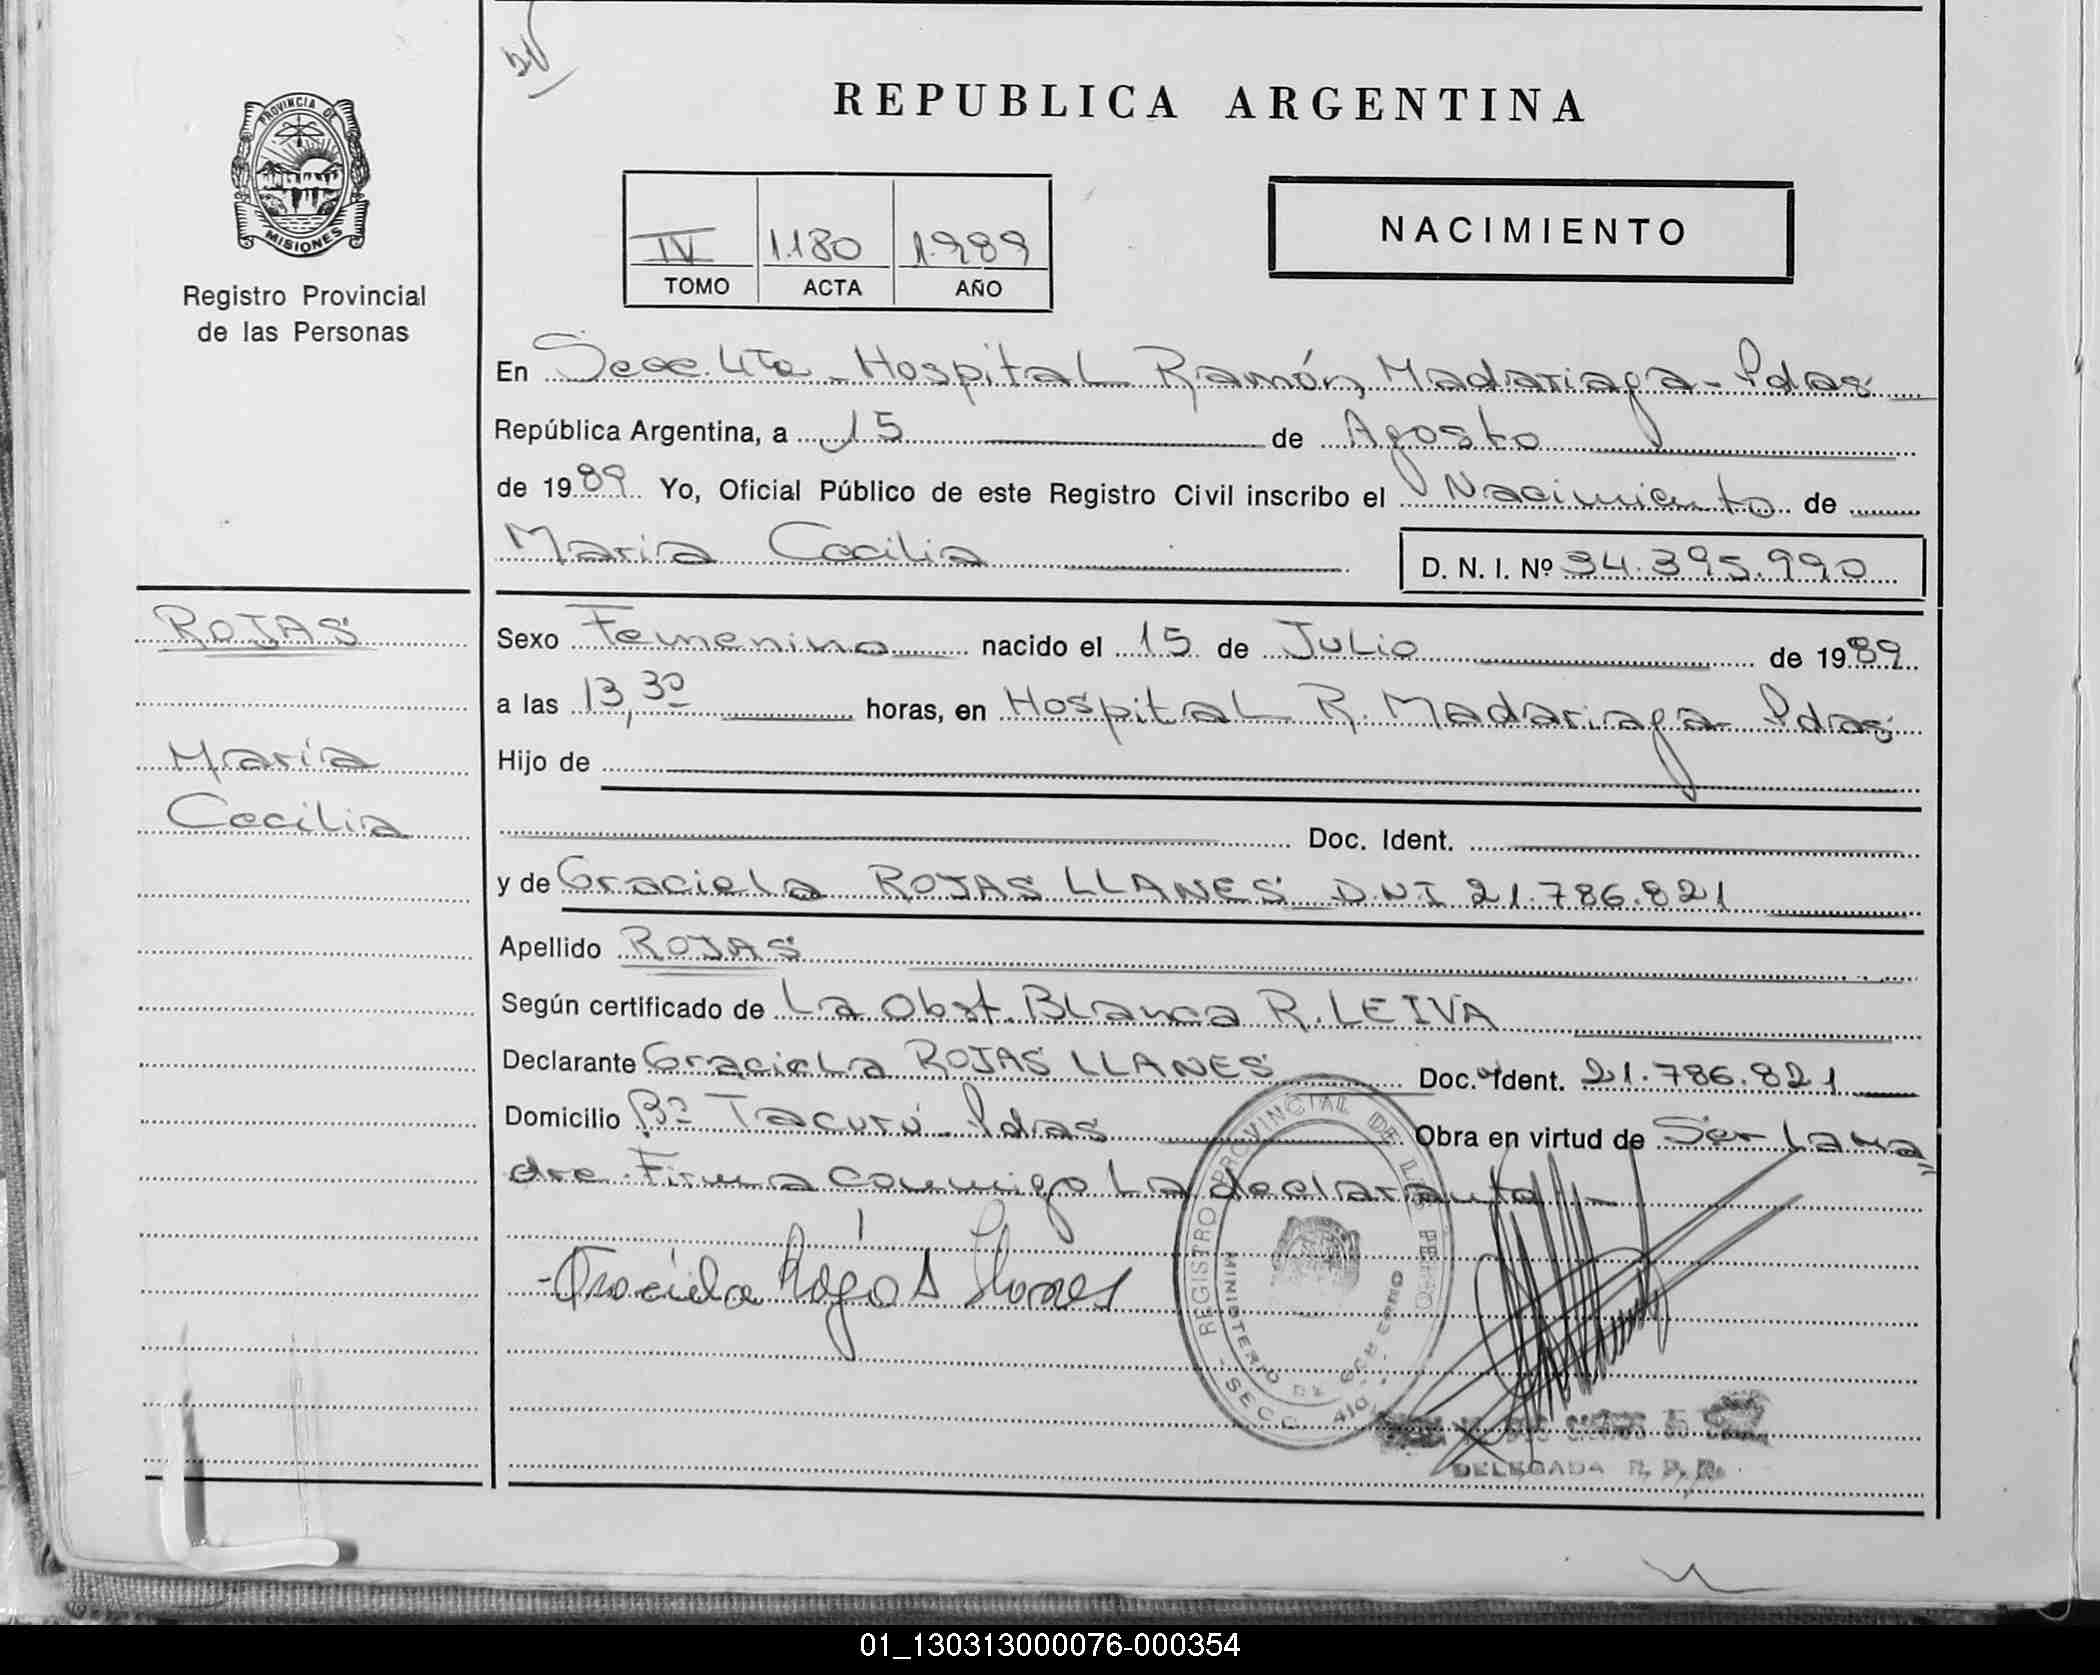 REPUBLICA ARGENTINA
PROVINCIA DE
MISIONES
Registro Provincial
de las Personas
IV 1.180 1.989
TOMO ACTA AÑO
NACIMIENTO
En Secc. 4ta - Hospital Ramón Madariaga - Pdas
República Argentina, a 15 de Agosto
de 1989 Yo, Oficial Público de este Registro Civil inscribo el Nacimiento de
María Cecilia D. N. I. Nº 34.395.990
ROJAS
María
Cecilia
Sexo Femenino nacido el 15 de Julio de 1989
a las 13,30 horas, en Hospital R. Madariaga - Pdas
Hijo de
Doc. Ident.
y de Graciela ROJAS LLANES D.N.I 21.786.821
Apellido ROJAS
Según certificado de La Obst. Blanca R. LEIVA
Declarante Graciela ROJAS LLANES Doc. Ident. 21.786.821
Domicilio Bº Tacurú - Pdas Obra en virtud de Ser La ma
dre - Firma conmigo La declarante -
- Graciela Rojas Llanes
REGISTRO PROVINCIAL DE LAS PERSO
MINISTERIO DE GOBIERNO
- SECC. 4ta
DELEGADA R. P. P.
01_130313000076-000354